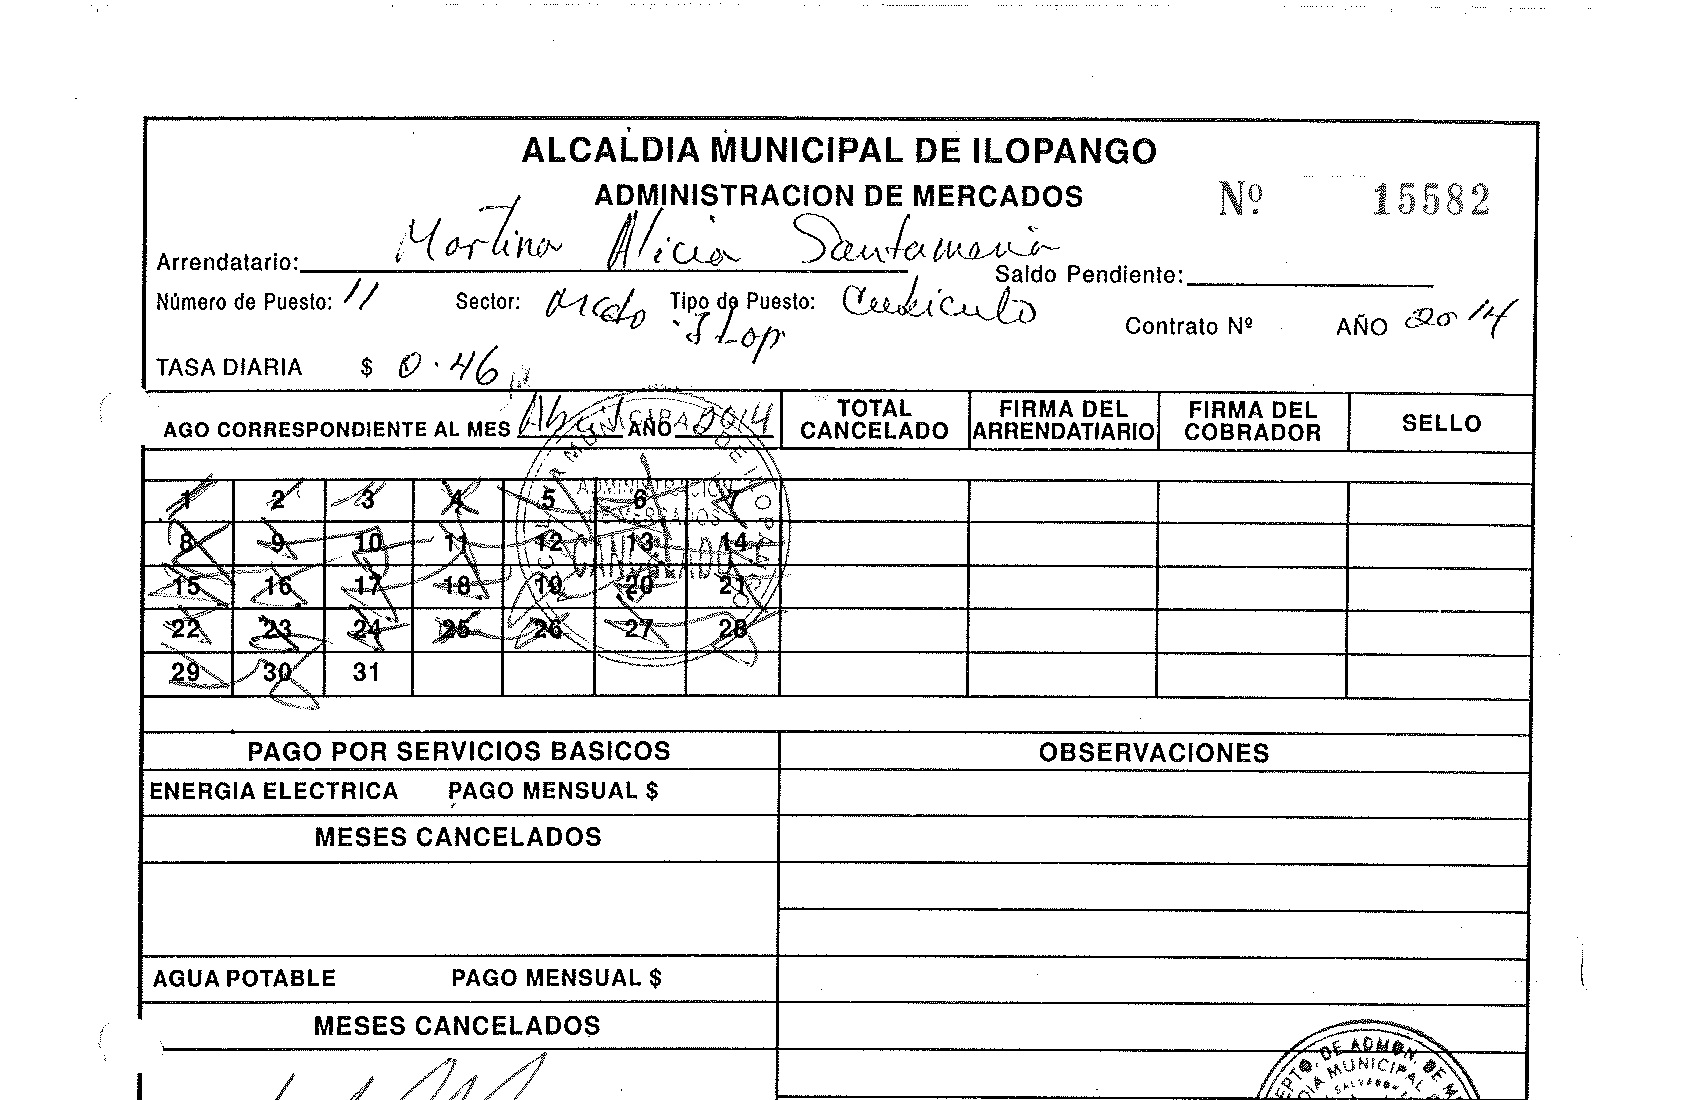 ALCALDIA MUNICIPAL DE ILOPANGO
ADMINISTRACION DE MERCADOS Nº 15582
Arrendatario: Martina Alicia Santamaria
Saldo Pendiente:
Número de Puesto: 11 Sector: Mcdo Ilop Tipo de Puesto: Cubiculo
Contrato Nº AÑO 2014
TASA DIARIA $ 0.46
AGO CORRESPONDIENTE AL MES Abril AÑO 2014
TOTAL CANCELADO
FIRMA DEL ARRENDATIARIO
FIRMA DEL COBRADOR
SELLO
1 2 3 4 5 6 7
8 9 10 11 12 13 14
15 16 17 18 19 20 21
22 23 24 25 26 27 28
29 30 31
ADMINISTRACION
CANCELADO
PAGO POR SERVICIOS BASICOS OBSERVACIONES
ENERGIA ELECTRICA PAGO MENSUAL $
MESES CANCELADOS
AGUA POTABLE PAGO MENSUAL $
MESES CANCELADOS
DE ADMON. DE
MUNICIPAL